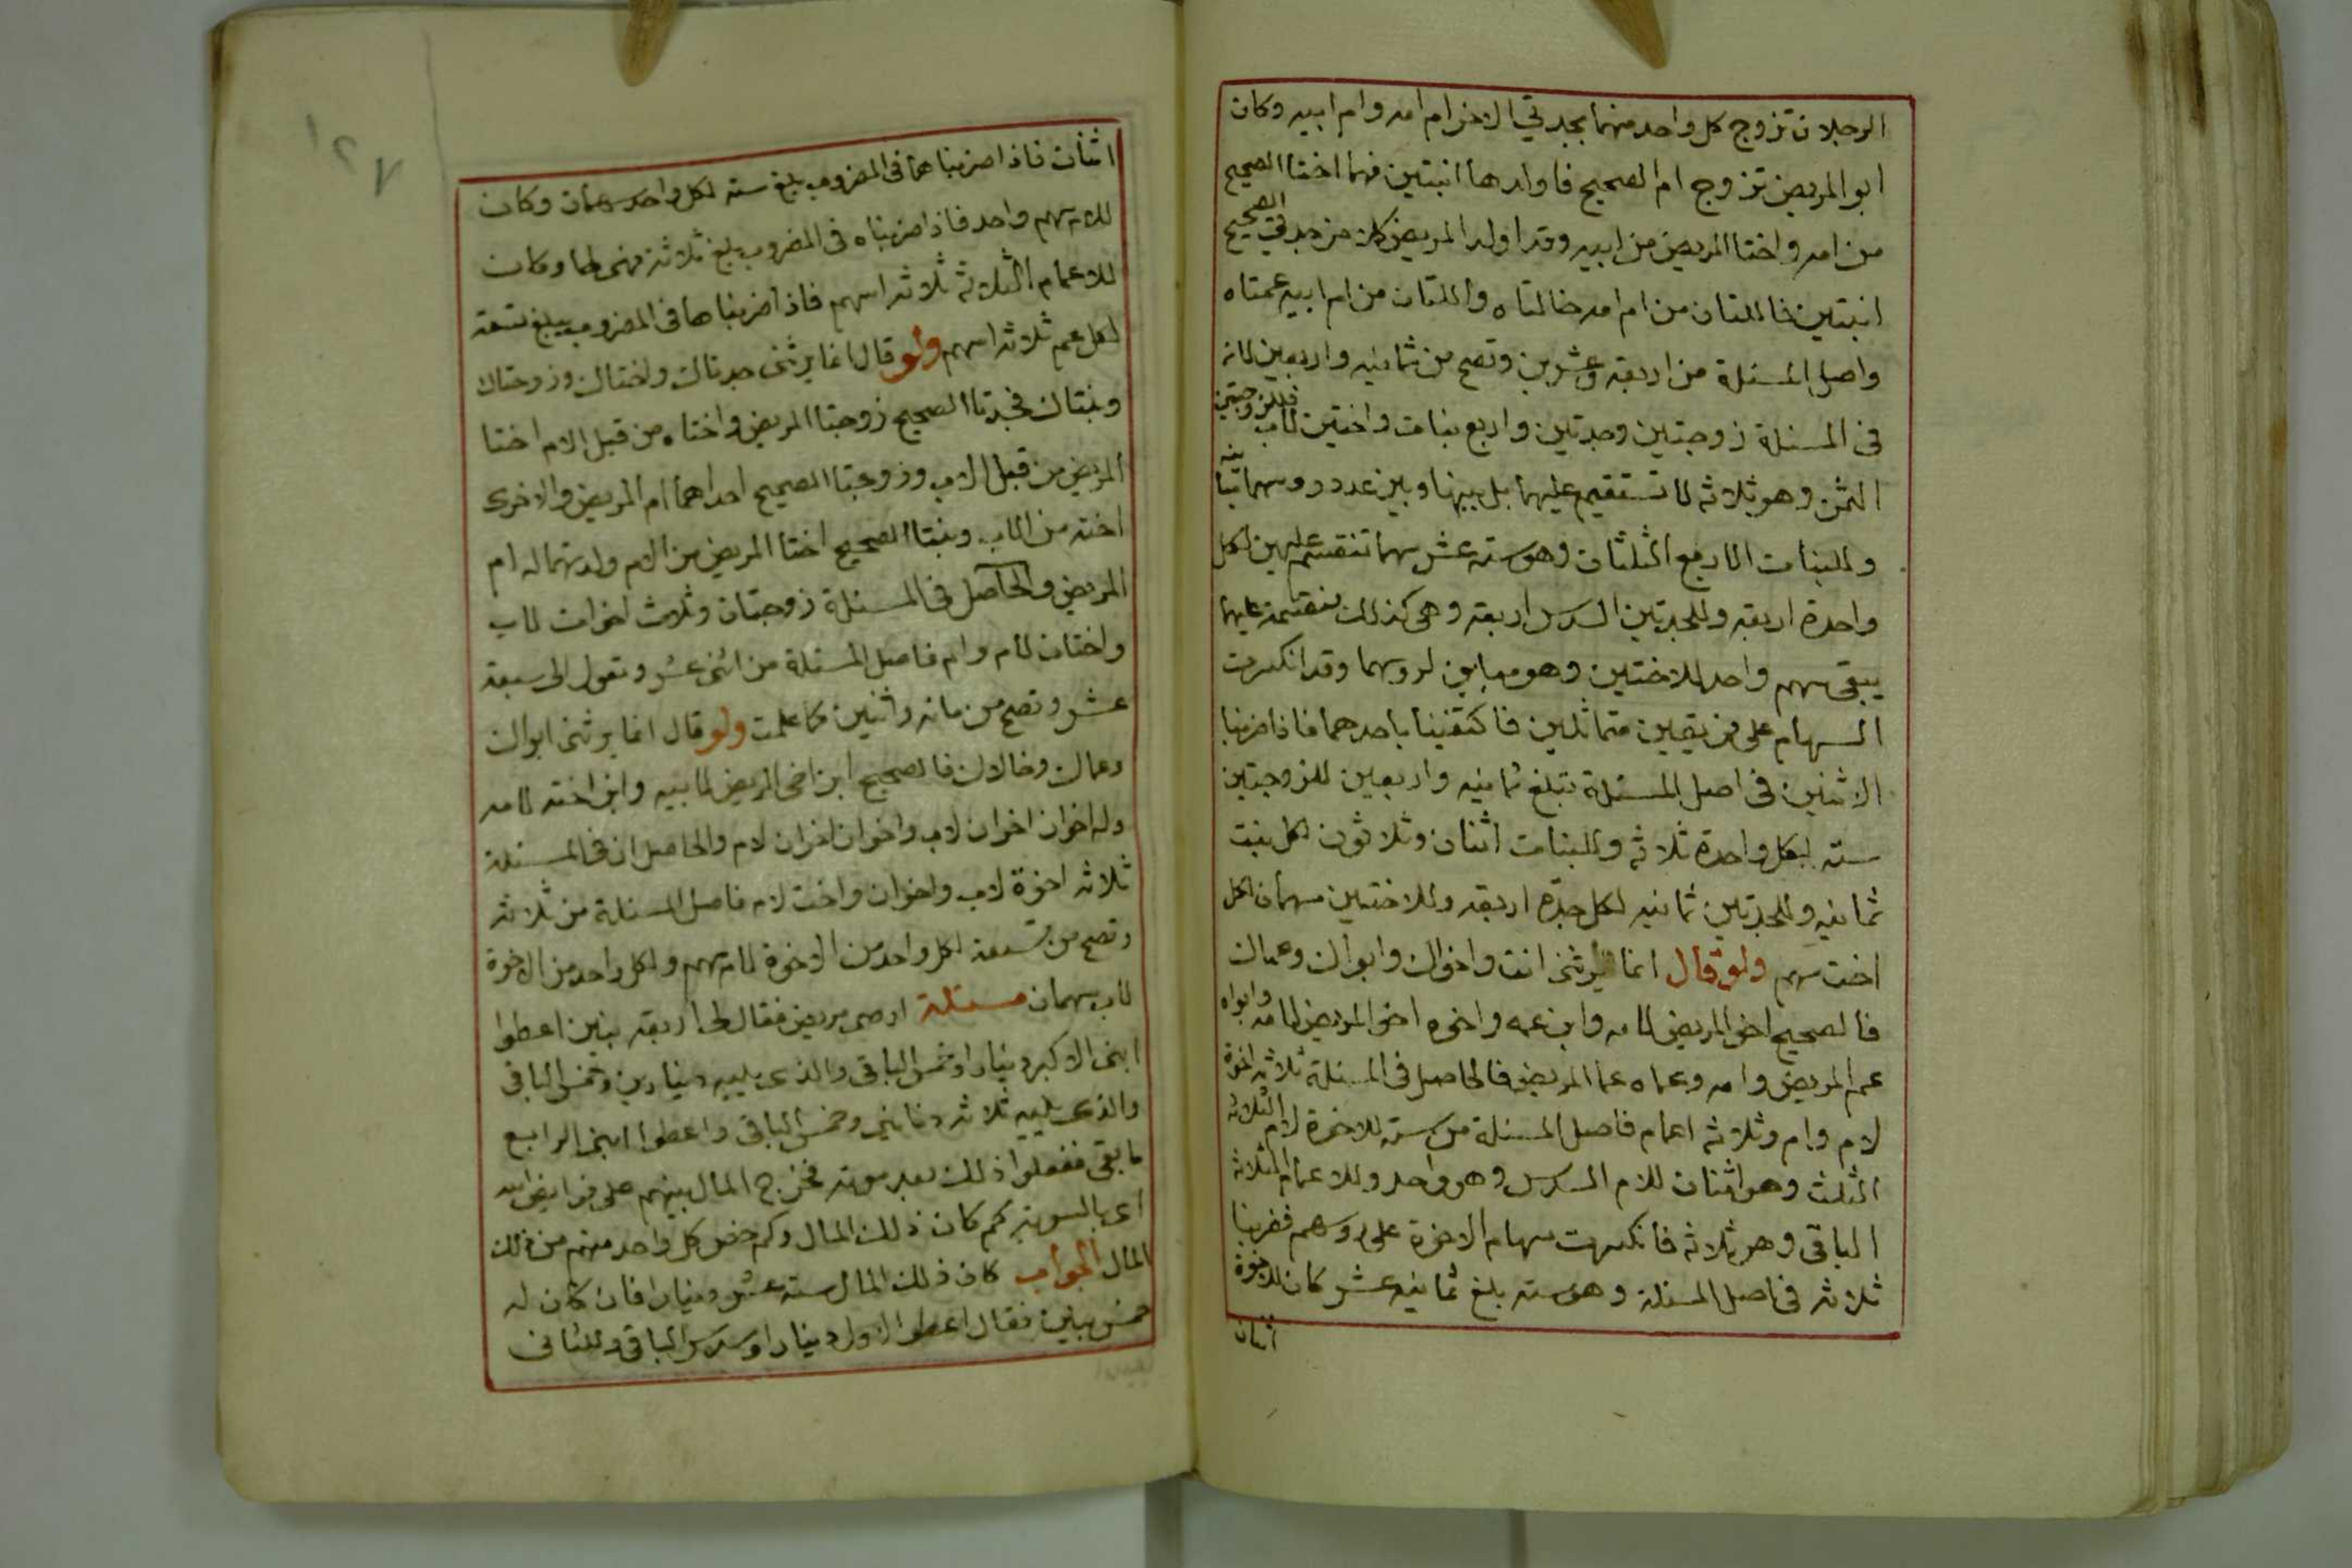 الرجلان تزوج كل واحد منهما بجدتي الاخر ام امه وام ابيه وكان
ابو المريض تزوج ام الصحيح فاولدها ابنتين فهما اختا الصحيح
من امه واختا المريض من ابيه وقد اولد المريض كلا من جدتي الصحيح
ابنتين فاللتان من ام امه خالتاه واللتان من ام ابيه عمتاه
واصل المسئلة من اربعة وعشرين وتصح من ثمانيه واربعين لانه
فى المسئلة زوجتين وجدتين واربع بنات واختين لاب فللزوجتين
الثمن وهو ثلاثه لا تستقيم عليهما بل بينها وبين عدد روسهما تباينه
وللبنات الاربع الثلثان وهو سته عشر سهما تنقسم عليهن لكل
واحدة اربعه وللجدتين السدس اربعه وهى كذلك منقسمة عليهما
يبقى سهم واحد للاختين وهو مباين لروسهما وقد انكسرت
السهام على فريقين متماثلين فاكتفينا باحدهما فاذا ضربنا
الاثنين فى اصل المسئلة تبلغ ثمانيه واربعين للزوجتين
سته لكل واحدة ثلاثه وللبنات اثنان وثلاثون لكل بنت
ثمانيه وللجدتين ثمانيه لكل جدة اربعه وللاختين سهمان لكل
اخت سهم ولو قال انما يرثنى انت واخواك وابواك وعماك
فالصحيح اخو المريض لامه وابن عمه واخوه اخو المريض لامه وابواه
عم المريض وامه وعماه عما المريض فالحاصل فى المسئلة ثلاثه اخوة
لام وام وثلاثه اعمام فاصل المسئلة من سته للاخوة لام الثلاثه
الثلث وهو اثنان للام السدس وهو واحد وللاعمام الثلاثه
الباقى وهو ثلاثه فانكسرت سهام الاخوة على روسهم فضربنا
ثلاثه فى اصل المسئلة وهو سته بلغ ثمانيه عشر كان للاخوة
اثنان
١٢٧
اثنان فاذا ضربناهما فى المضروب يبلغ سته لكل واحد سهمان وكان
للام سهم واحد فاذا ضربناه فى المضروب يبلغ ثلاثة فهى لها وكان
للاعمام الثلاثه ثلاثه اسهم فاذا ضربناها فى المضروب يبلغ تسعه
لكل عم ثلاثه اسهم ولو قال انما يرثنى جدتاك واختاك وزوجتاك
وبنتاك فجدتا الصحيح زوجتا المريض واختاه من قبل الام اختا
المريض من قبل الاب وزوجتا الصحيح احداهما ام المريض والاخرى
اخته من الاب وبنتا الصحيح اختا المريض من الام ولدتهما له ام
المريض والحاصل فى المسئلة زوجتان وثلاث اخوات لاب
واختان لام وام فاصل المسئلة من اثنى عشر وتعول الى سبعة
عشر وتصح من مائه واثنين كما علمت ولو قال انما يرثنى ابواك
وعماك وخالاك فالصحيح ابن اخى المريض لابيه وابن اخته لامه
وله اخوان اخوان لاب واخوان اخوان لام والحاصل ان فى المسئلة
ثلاثه اخوة لاب واخوان واخت لام فاصل المسئلة من ثلاثه
وتصح من تسعة لكل واحد من الاخوة لام سهم ولكل واحد من الاخوة
لاب سهمان مسئلة اوصى مريض فقال لها اربعه بنين اعطوا
ابنى الاكبر دينارا وخمس الباقى والذى يليه دينارين وخمس الباقى
والذى يليه ثلاثه دنانير وخمس الباقى واعطوا ابنى الرابع
ما بقى ففعلوا ذلك بعد موته فخرج المال بينهم على فرايض الله
اى بالسويه كم كان ذلك المال وكم خص كل واحد منهم من ذلك
المال الجواب كان ذلك المال سته عشر دينارا فان كان له
خمس بنين فقال اعطوا الاول دينارا وسدس الباقى وللثانى